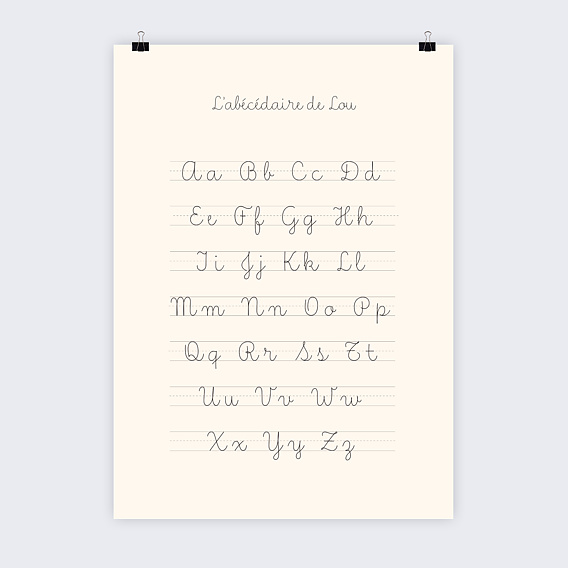 L'abécédaire de Lou
Aa Bb Cc Dd
Ee Ff Gg Hh
Ii Jj Kk Ll
Mm Nn Oo Pp
Qq Rr Ss Tt
Uu Vv Ww
Xx Yy Zz